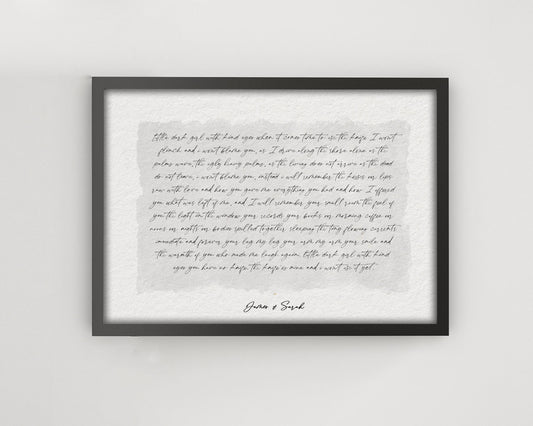 little dark girl with kind eyes when it comes time to use the knife I won't
flinch and i won't blame you, as I drive along the shore alone as the
palms wave, the ugly heavy palms, as the living does not arrive as the dead
do not leave, i won't blame you, instead i will remember the kisses our lips
raw with love and how you gave me everything you had and how I offered
you what was left of me, and I will remember your small room the feel of
you the light in the window your records your books our morning coffee our
noons our nights our bodies spilled together sleeping the tiny flowing currents
immediate and forever your leg my leg your arm my arm your smile and
the warmth of you who made me laugh again. little dark girl with kind
eyes you have no knife. the knife is mine and i won't use it yet.
James & Sarah